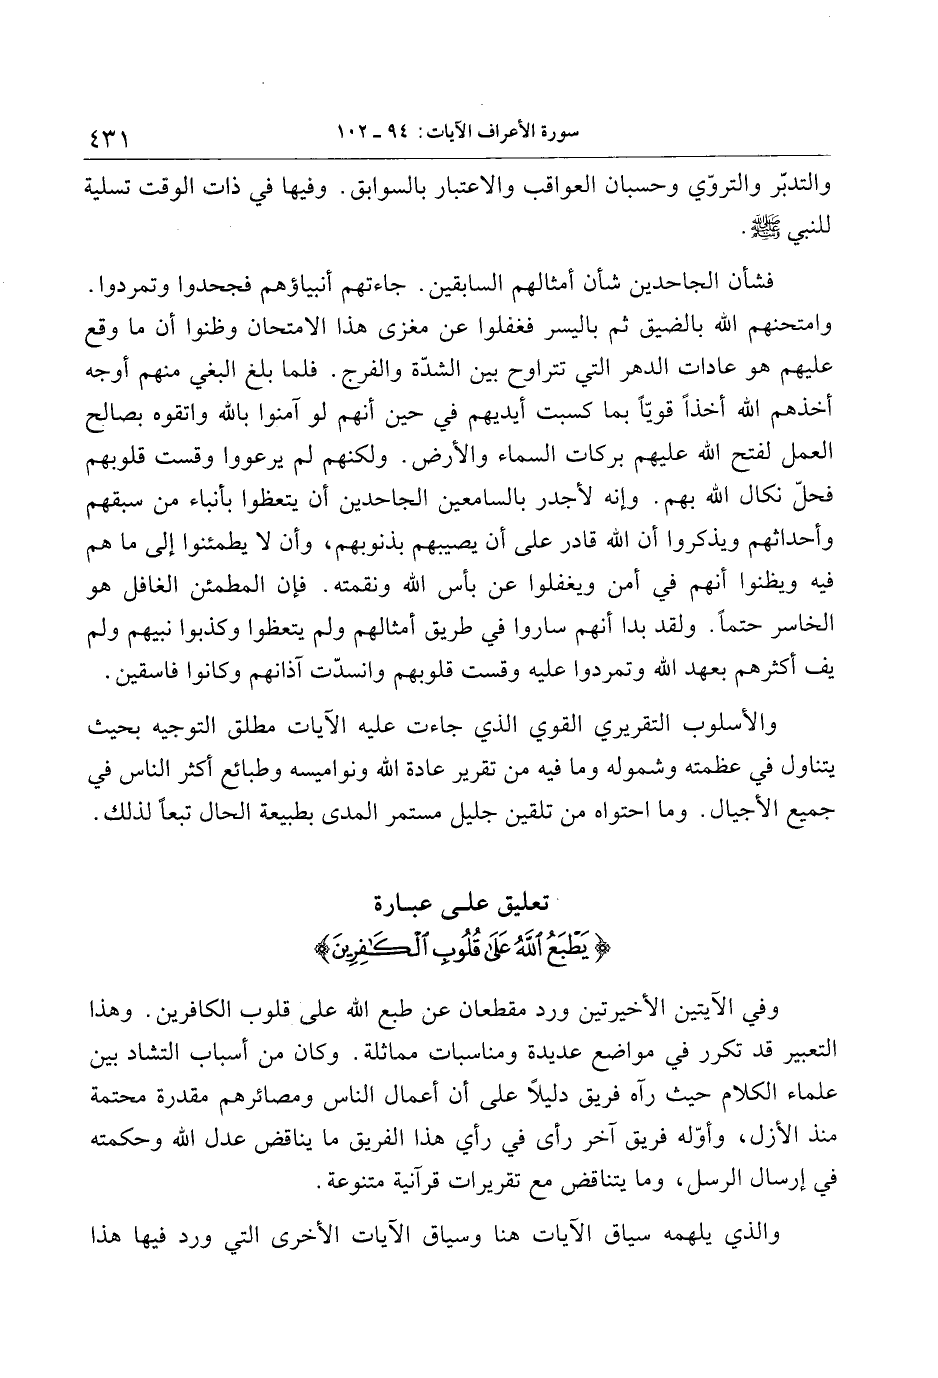 سورة الأعراف الآيات: ٩٤ ـ ١٠٢
٤٣١
والتدبّر والتروّي وحسبان العواقب والاعتبار بالسوابق. وفيها في ذات الوقت تسلية
للنبي ﷺ.
فشأن الجاحدين شأن أمثالهم السابقين. جاءتهم أنبياؤهم فجحدوا وتمردوا.
وامتحنهم الله بالضيق ثم باليسر فغفلوا عن مغزى هذا الامتحان وظنوا أن ما وقع
عليهم هو عادات الدهر التي تتراوح بين الشدّة والفرج. فلما بلغ البغي منهم أوجه
أخذهم الله أخذاً قويّاً بما كسبت أيديهم في حين أنهم لو آمنوا بالله واتقوه بصالح
العمل لفتح الله عليهم بركات السماء والأرض. ولكنهم لم يرعووا وقست قلوبهم
فحلّ نكال الله بهم. وإنه لأجدر بالسامعين الجاحدين أن يتعظوا بأنباء من سبقهم
وأحداثهم ويذكروا أن الله قادر على أن يصيبهم بذنوبهم، وأن لا يطمئنوا إلى ما هم
فيه ويظنوا أنهم في أمن ويغفلوا عن بأس الله ونقمته. فإن المطمئن الغافل هو
الخاسر حتماً. ولقد بدا أنهم ساروا في طريق أمثالهم ولم يتعظوا وكذبوا نبيهم ولم
يف أكثرهم بعهد الله وتمردوا عليه وقست قلوبهم وانسدّت آذانهم وكانوا فاسقين.
والأسلوب التقريري القوي الذي جاءت عليه الآيات مطلق التوجيه بحيث
يتناول في عظمته وشموله وما فيه من تقرير عادة الله ونواميسه وطبائع أكثر الناس في
جميع الأجيال. وما احتواه من تلقين جليل مستمر المدى بطبيعة الحال تبعاً لذلك.
تعليق على عبارة
﴿يَطْبَعُ ٱللَّهُ عَلَىٰ قُلُوبِ ٱلْكَـٰفِرِينَ﴾
وفي الآيتين الأخيرتين ورد مقطعان عن طبع الله على قلوب الكافرين. وهذا
التعبير قد تكرر في مواضع عديدة ومناسبات مماثلة. وكان من أسباب التشاد بين
علماء الكلام حيث رآه فريق دليلاً على أن أعمال الناس ومصائرهم مقدرة محتمة
منذ الأزل، وأوّله فريق آخر رأى في رأي هذا الفريق ما يناقض عدل الله وحكمته
في إرسال الرسل، وما يتناقض مع تقريرات قرآنية متنوعة.
والذي يلهمه سياق الآيات هنا وسياق الآيات الأخرى التي ورد فيها هذا